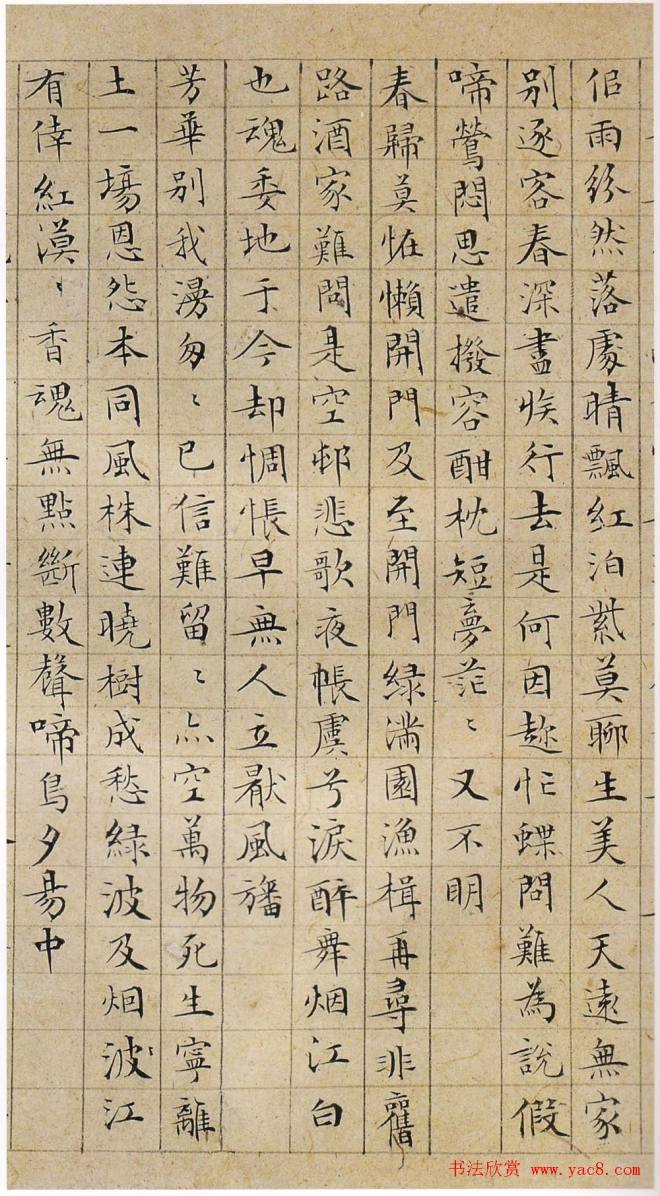 佀雨紛然落處晴飄紅泊紫莫聊生美人天遠無家
别逐客春深盡族行去是何因趂忙蝶問難為說假
啼鶯悶思遣撥容酣枕短夢茫〻又不明
春歸莫恠懶開門及至開門緑滿園漁楫再尋非舊
路酒家難問是空邨悲歌夜帳虞兮淚醉舞烟江白
也魂委地于今却惆悵早無人立猒風旛
芳華别我漫匆〻已信難留〻亦空萬物死生寧離
土一塲恩怨本同風株連曉樹成愁緑波及烟波江
有倖紅漠〻香魂無點斷數聲啼鳥夕昜中
书法欣赏 www.yac8.com